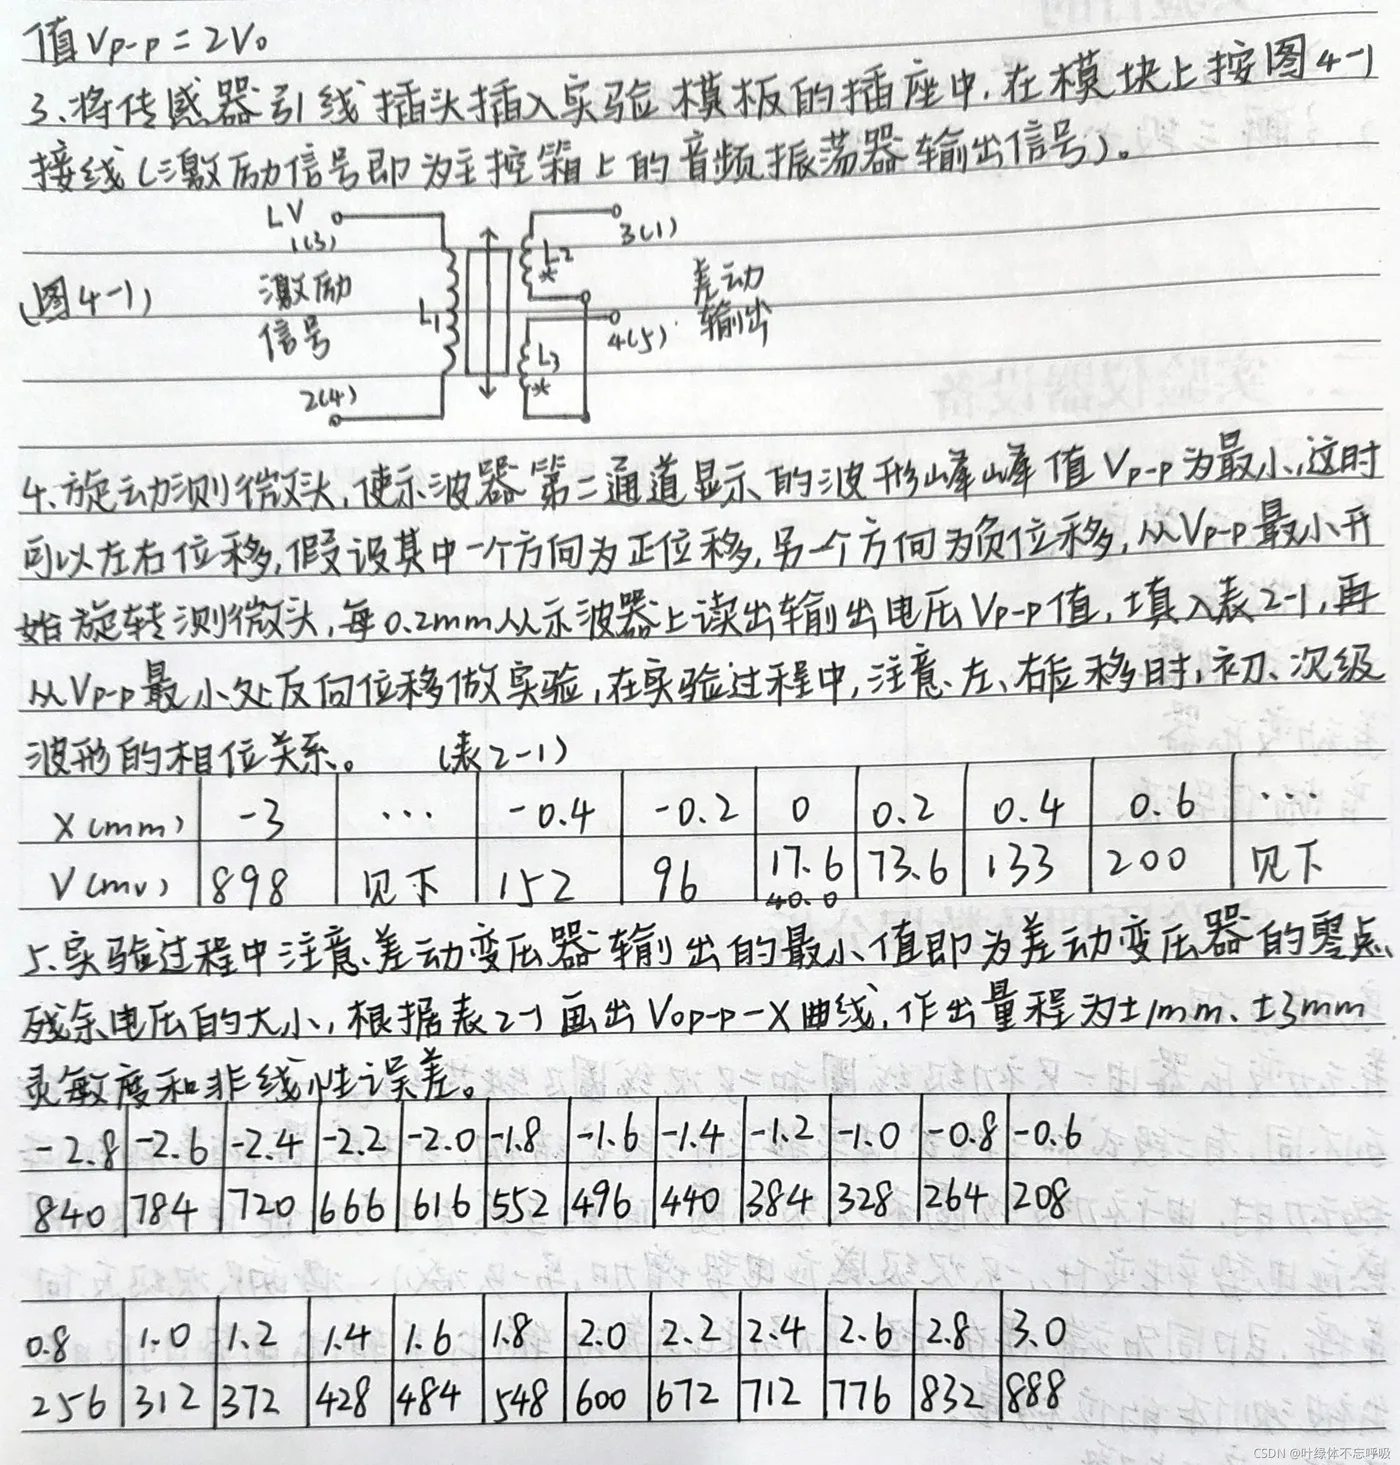 值Vp-p=2V。
3.将传感器引线插头插入实验模板的插座中,在模块上按图4-1
接线(激励信号即为主控箱上的音频振荡器输出信号)。
LV
1(3)
L2
*
3(1)
(图4-1)
激励
信号
L1
差动
输出
4(5)
L3
*
2(4)
4.旋动测微头,使示波器第二通道显示的波形峰峰值Vp-p为最小,这时
可以左右位移,假设其中一个方向为正位移,另一个方向为负位移,从Vp-p最小开
始旋转测微头,每0.2mm从示波器上读出输出电压Vp-p值,填入表2-1,再
从Vp-p最小处反向位移做实验,在实验过程中,注意左、右位移时,初、次级
波形的相位关系。 (表2-1)
X(mm) -3 ··· -0.4 -0.2 0 0.2 0.4 0.6 ···
V(mv) 898 见下 152 96 17.6 73.6 133 200 见下
40.0
5.实验过程中注意差动变压器输出的最小值即为差动变压器的零点
残余电压的大小,根据表2-1画出Vop-p-X曲线,作出量程为±1mm、±3mm
灵敏度和非线性误差。
-2.8 -2.6 -2.4 -2.2 -2.0 -1.8 -1.6 -1.4 -1.2 -1.0 -0.8 -0.6
840 784 720 666 616 552 496 440 384 328 264 208
0.8 1.0 1.2 1.4 1.6 1.8 2.0 2.2 2.4 2.6 2.8 3.0
256 312 372 428 484 548 600 672 712 776 832 888
CSDN @叶绿体不忘呼吸